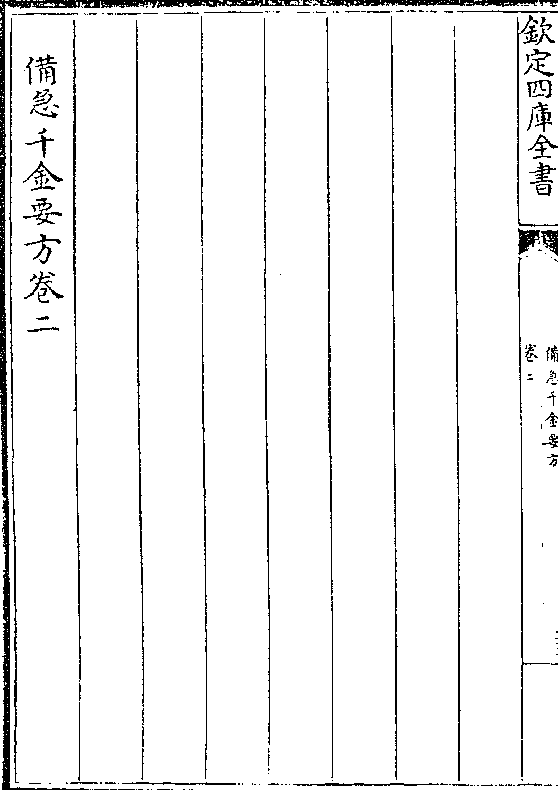 欽定四庫全書
備急千金要方
卷二
備急千金要方卷二